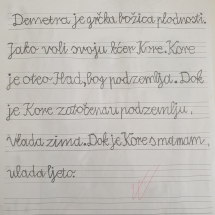 Demetra je grčka božica plodnosti.
Jako voli svoju kćer Kore. Kore
je oteo Had, bog podzemlja. Dok
je Kore zatočena u podzemlju,
vlada zima. Dok je Kore s mamam,
vlada ljeto.